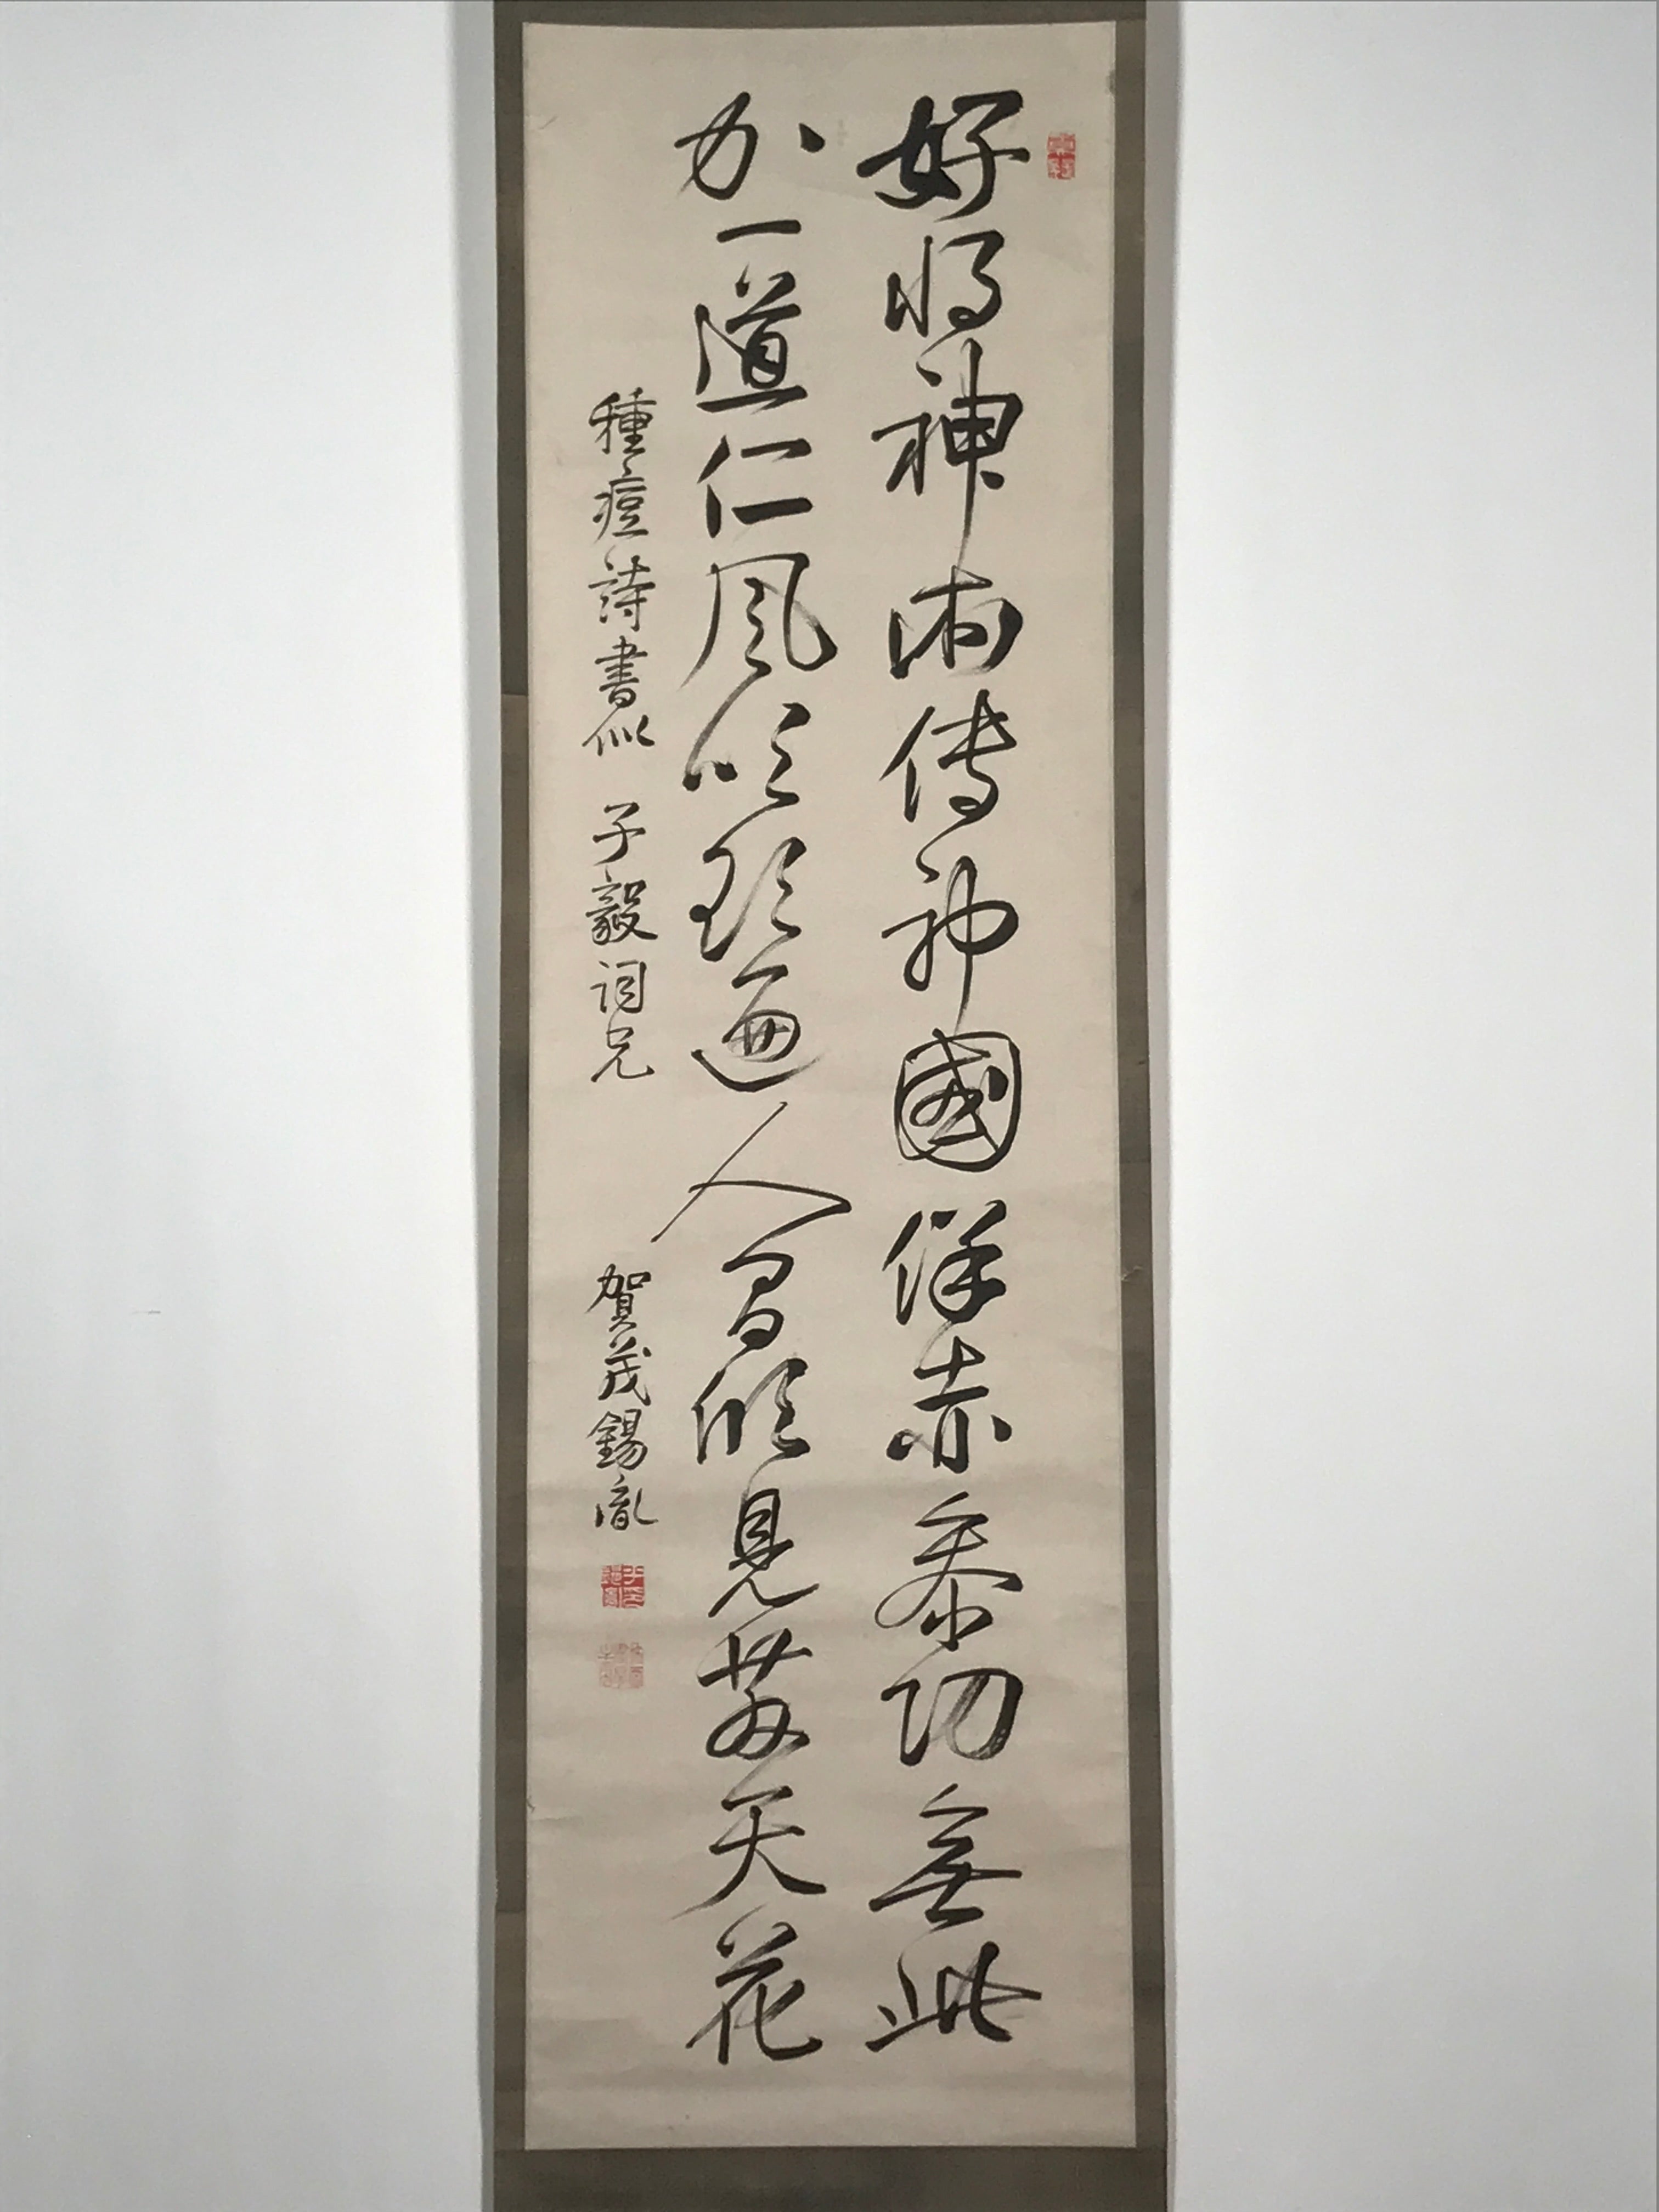 好將神術傳神國保赤奏功無此
加一道仁風吹殆遍人間見天花
種痘詩書似 子毅詞兄 賀茂錫胤